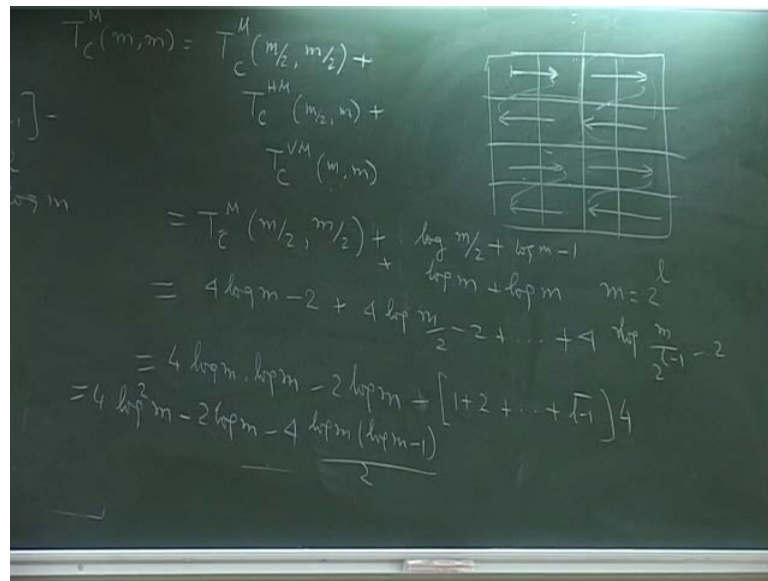 T_C^M (m, m) = T_C^M (m/2, m/2) +
T_C^{HM} (m/2, m) +
T_C^{VM} (m, m)
] -
log m
= T_C^M (m/2, m/2) + log m/2 + log m - 1
+ log m + log m m = 2^l
= 4 log m - 2 + 4 log m/2 - 2 + ... + 4 log m/2^{l-1} - 2
= 4 log m . log m - 2 log m - [1 + 2 + ... + l-1] 4
= 4 log^2 m - 2 log m - 4 log m (log m - 1)/2